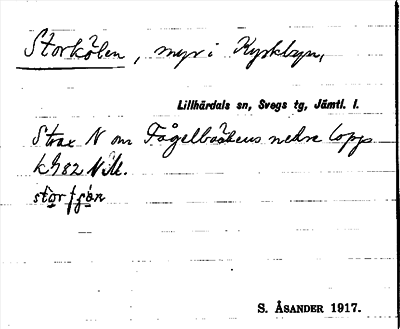 Storkölen, myr i Kyrkbyn,
Lillhärdals sn, Svegs tg, Jämtl. l.
Strax N om Fågelbäckens nedre lopp
S. ÅSANDER 1917.